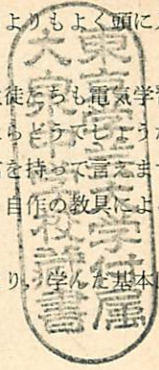 よりもよく頭に
徒たちも電気学
らどうでしょう
を持って言えます
自作の教具によ
り，学んだ基本
東京学芸大学付属
大泉中学校書